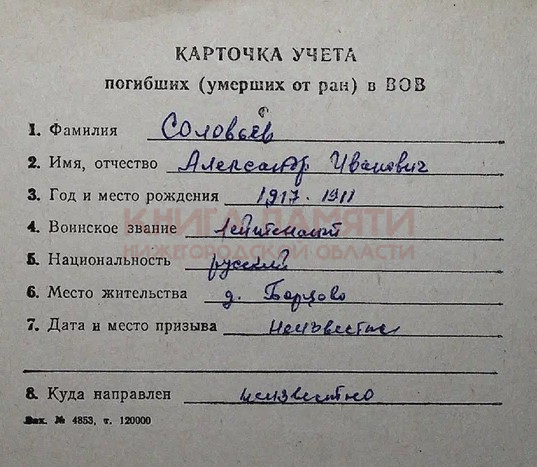 КАРТОЧКА УЧЕТА
погибших (умерших от ран) в ВОВ
1. Фамилия Соловьев
2. Имя, отчество Александр Иванович
3. Год и место рождения 1917 · 1911
4. Воинское звание лейтенант
КНИГА ПАМЯТИ
НИЖЕГОРОДСКОЙ ОБЛАСТИ
5. Национальность русский
6. Место жительства д. Борцово
7. Дата и место призыва неизвестно
8. Куда направлен неизвестно
Зак. № 4853, т. 120000